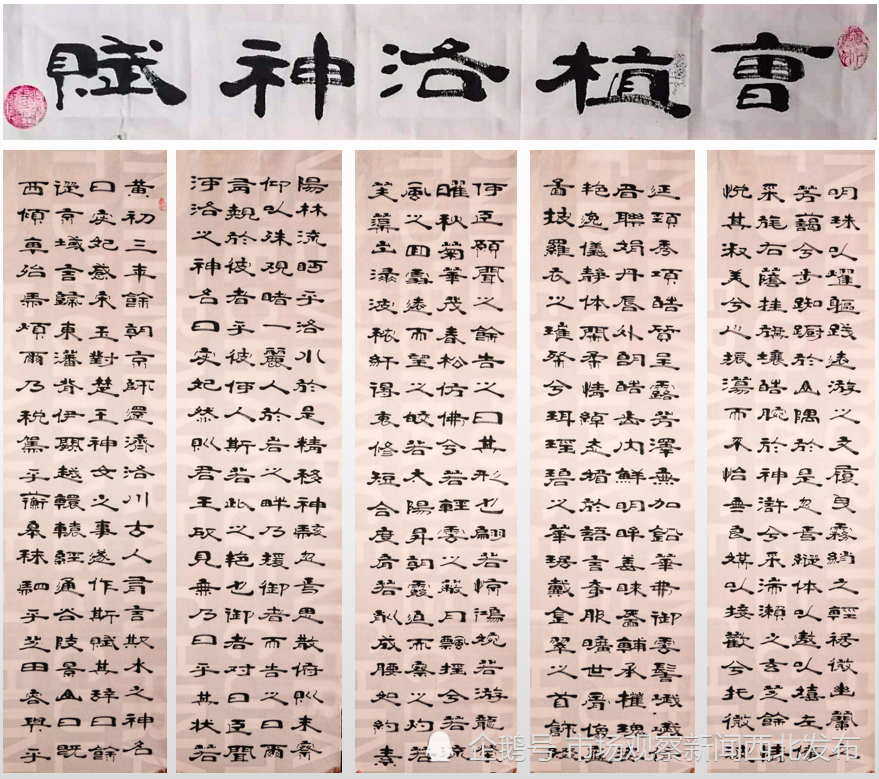 曹植洛神賦
黄初三年餘朝京師還濟洛川古人有言斯水之神名
曰宓妃感宋玉對楚王神女之事遂作斯賦其辭曰餘
從京域言歸東藩背伊闕越轘轅經通谷陵景山日既
西傾車殆馬煩爾乃税駕乎蘅皋秣駟乎芝田容與乎
陽林流眄乎洛水於是精移神駭忽焉思散俯則未察
仰以殊觀睹一麗人於岩之畔乃援御者而告之曰爾
有覿於彼者乎彼何人斯若此之艷也御者對曰臣聞
河洛之神名曰宓妃然則君王所見無乃曰乎其狀若
何臣願聞之餘告之曰其形也翩若惊鴻婉若游龍
曜秋菊華茂春松仿佛兮若輕雲之蔽月飄摇兮若流
風之回雪遠而望之皎若太陽昇朝霞迫而察之灼若
芙蕖出淥波穠纖得衷修短合度肩若削成腰如約素
延頸秀項皓質呈露芳澤無加鉛華弗御雲髻峨峨
眉聯娟丹唇外朗皓齒内鮮明眸善睞靨輔承權瑰
艷逸儀静体閑柔情綽态媚於語言奇服曠世骨像
圖披羅衣之璀粲兮珥瑶碧之華琚戴金翠之首飾
明珠以耀軀踐遠游之文履曳霧綃之輕裾微幽蘭
芳藹兮步踟躕於山隅於是忽焉縱体以遨以嬉左
采旄右蔭桂旗攘皓腕於神滸兮采湍瀨之玄芝餘
悦其淑美兮心振蕩而不怡無良媒以接歡兮托微
企鹅号 市场观察新闻西北发布